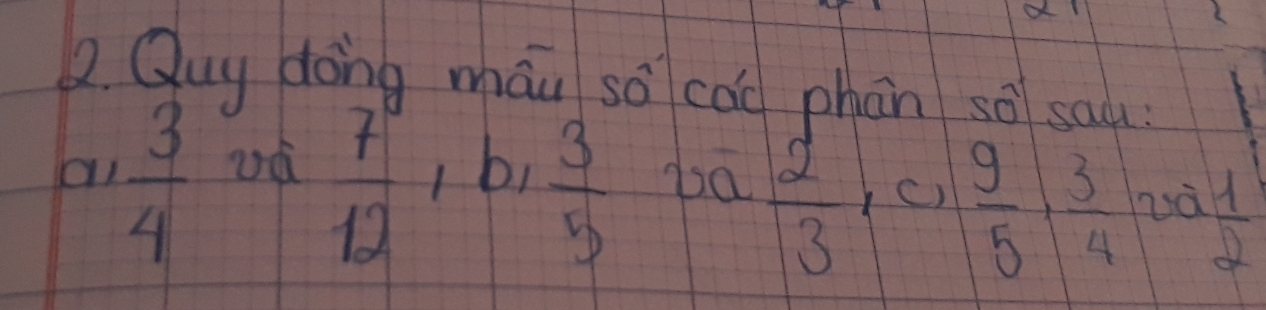 2. Quy đồng mẫu số các phân số sau:
a, 3/4 và 7/12, b, 3/5 và 2/3, c, 9/5, 3/4 và 1/2